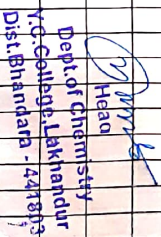 Head
Dept.of Chemistry
Y.C.College,Lakhandur
Dist.Bhandara - 441803